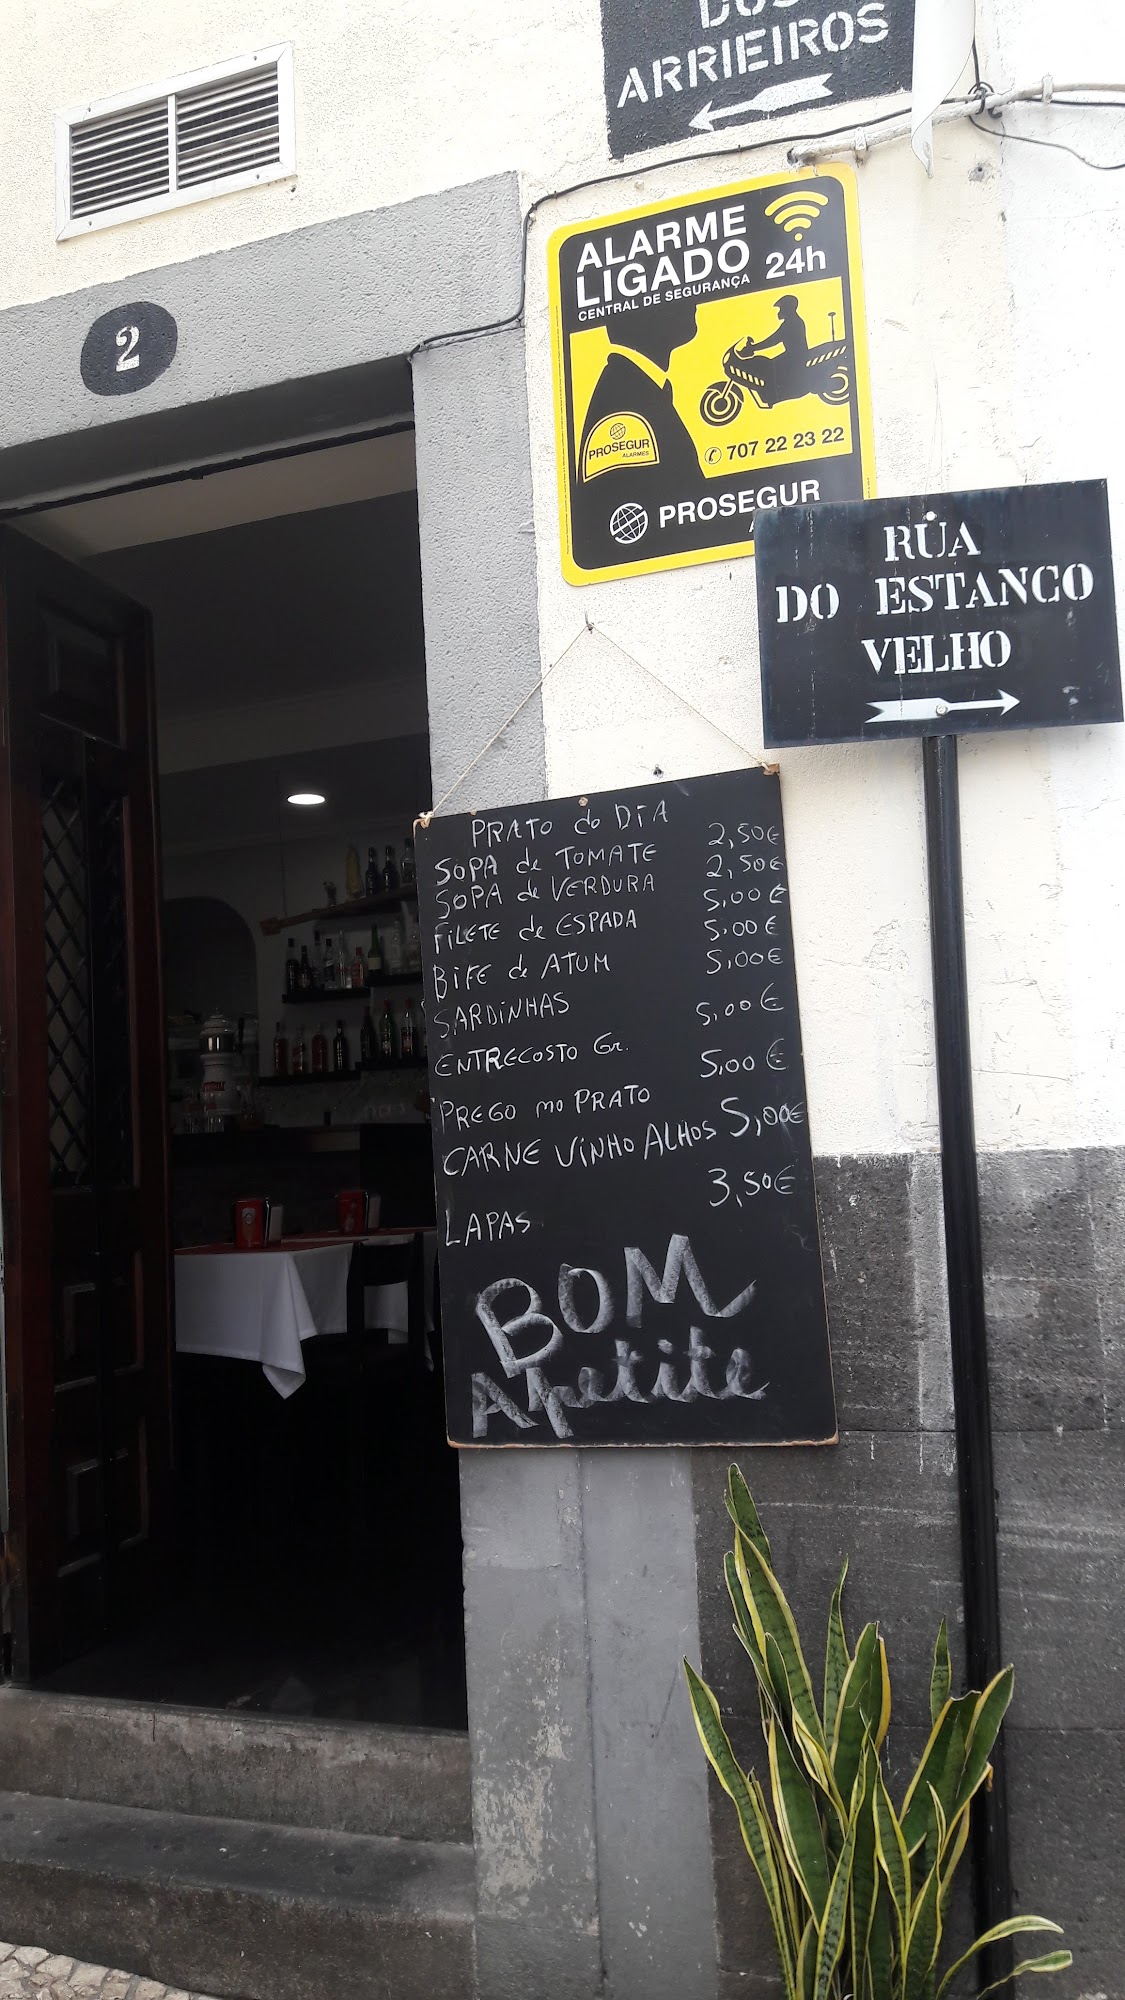 DOS
ARRIEIROS
ALARME
LIGADO
24h
CENTRAL DE SEGURANÇA
PROSEGUR
ALARMES
707 22 23 22
PROSEGUR
2
RUA
DO ESTANCO
VELHO
PRATO do DIA
SOPA de TOMATE 2,50€
SOPA de VERDURA 2,50€
FILETE de ESPADA 5,00€
BIFE de ATUM 5,00€
SARDINHAS 5,00€
ENTRECOSTO Gr. 5,00€
PREGO no PRATO 5,00€
CARNE VINHO ALHOS 5,00€
LAPAS 3,50€
BOM
Apetite